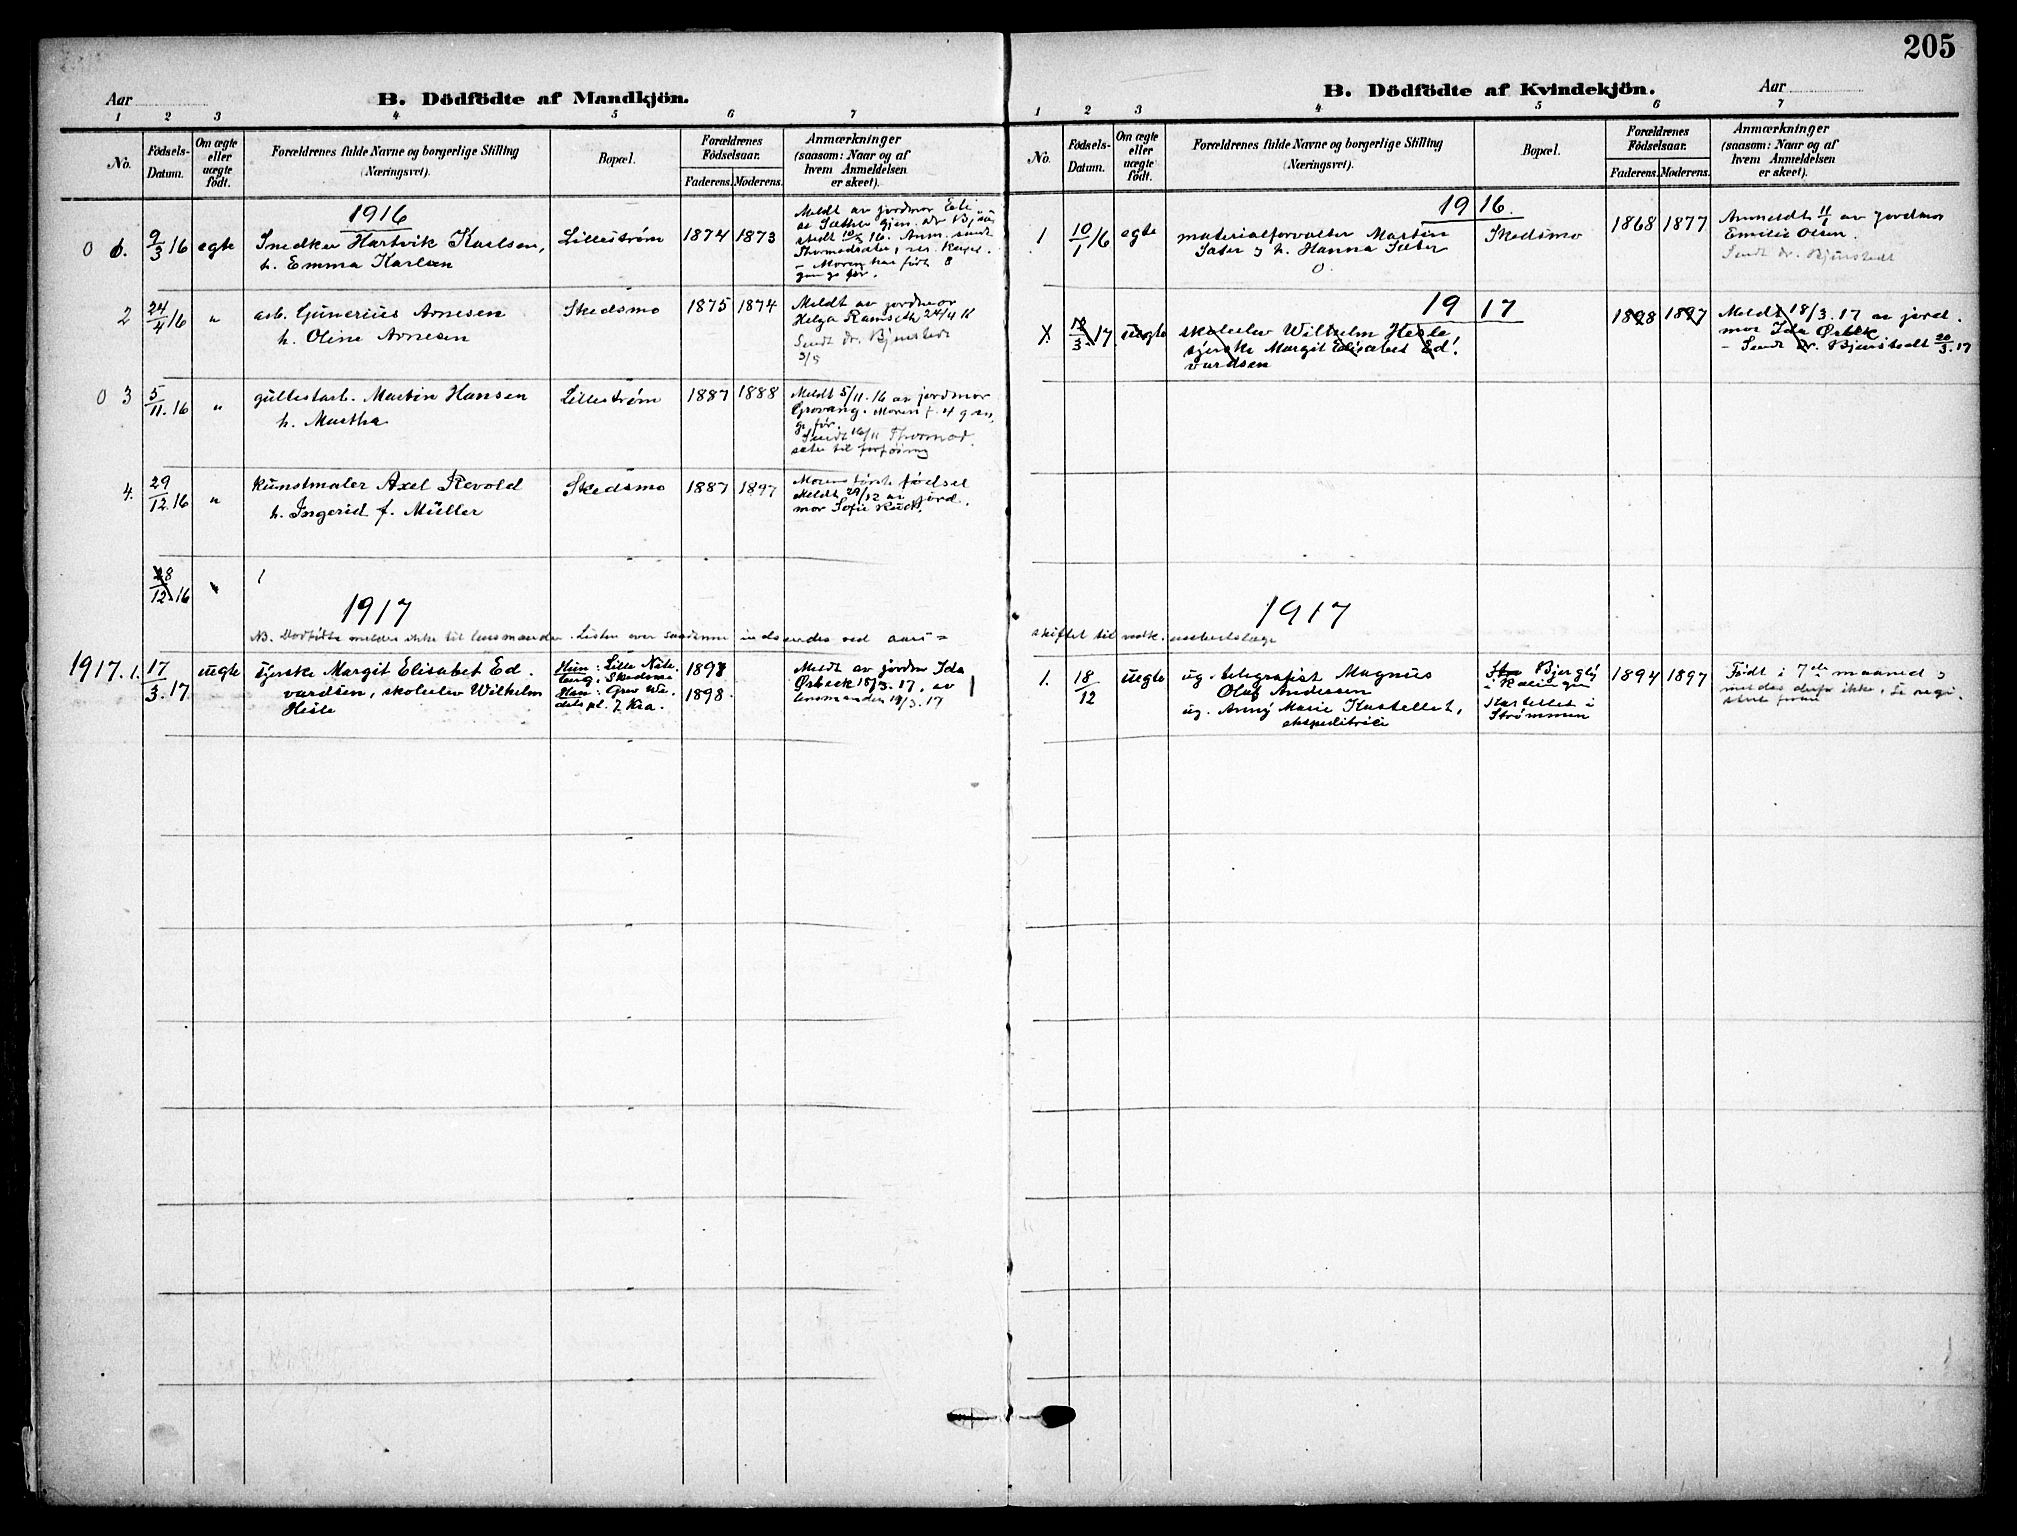 205
Aar
B. Dödfödte af Mandkjön.
1 2 3 4 5 6 7
No.
Födsels-
Datum.
Om ægte
eller
uægte
födt.
Forældrenes fulde Navne og borgerlige Stilling
(Næringsvei).
Bopæl.
Forældrenes
Födselsaar.
Faderens. Moderens.
Anmærkninger
(saasom: Naar og af
hvem Anmeldelsen
er skeet).
1916
9/3 16 egte
Snedker Hartvik Karlsen,
h. Emma Karlsen
Lillestrøm
1874 1873
Meldt av jordmor
Moren har født 8
2 24/4 16 "
arb. Gunerius Arnesen
h. Oline Arnesen
Skedsmo
1875 1874
Meldt av jordmor
Helga Ramseth 24/4 16
Sendt dr. Bjørnstedt
0 3 5/11. 16 "
Martin Hansen
h. Martha
Lillestrøm
1887 1888
Meldt 5/11. 16 av jordmor
Grovang. Moren f. 4 gan,
ge før.
Sendt 16/11
4. 29/12. 16 "
Kunstmaler Axel Revold
h. Ingerid f. Müller
Skedsmo
1887 1897
Morens første fødsel
Meldt 29/12 av jord.
mor Sofie Rud.
28/12. 16
1917
NB. Dødfødte meldes ikke til lensmanden. Listen over saadanne indsendes ved aars=
1917. 1. 17/3. 17 uegte
syerske Margit Elisabet Ed.
vardsen, skoleelev Wilhelm
Hesle
Hun: Lille
berg, Skedsmo
Han: Grev We.
dels pl. 7 Kra.
1897
1898
Meldt av jordmor Ida
Ørbeck 18/3. 17, av
lensmanden 19/3. 17
B. Dödfödte af Kvindekjön.
Aar
1 2 3 4 5 6 7
No.
Födsels-
Datum.
Om ægte
eller
uægte
födt.
Forældrenes fulde Navne og borgerlige Stilling
(Næringsvei).
Bopæl.
Forældrenes
Födselsaar.
Faderens. Moderens.
Anmærkninger
(saasom: Naar og af
hvem Anmeldelsen
er skeet).
1916.
1 10/1 16 egte
materialforvalter Martin
Sæter og h. Hanna Sæter
Skedsmo
1868 1877
Anmeldt 11/1 av jordmor
Emilie Olsen.
Sendt dr. Bjørnstedt
1917
1. 18/3. 17 uegte
skoleelev Wilhelm Hesle
syerske Margit Elisabet Ed.
vardsen
1898 1897
Meldt 18/3. 17 av jord.
mor Ida Ørbek
- Sendt dr. Bjørnstedt 20/3. 17
1917
skiftet til
1. 18/12 uegte
ug. telegrafist Magnus
Olaf Andersen
ug. Anny Marie Kastellet,
ekspeditrice
Kastellet i
Strømmen
1894 1897
Født i 7de maaned og
meldes derfor ikke. Se regi.